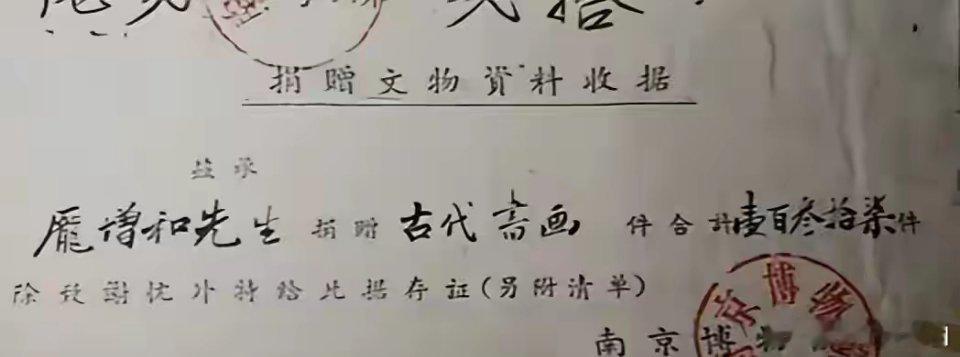 捐赠文物資料收据
兹承
龐增和先生 捐赠 古代書画 件合計壹百叁拾柒件
除致謝忱外特给此据存証(另附清单)
南京博物
京博物